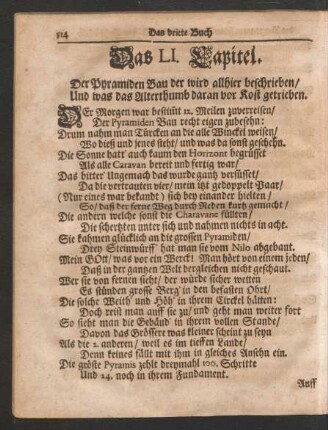 314
Das dritte Buch
Das LI. Capitel.
Der Pyramiden Bau der wird allhier beschrieben/
Und was das Alterthumb daran vor Kost getrieben.
DEr Morgen war bestimt 12. Meilen zuverreisen/
Der Pyramiden Bau recht eigen zubesehn:
Drum nahm man Türcken an die alle Winckel weisen/
Wo dieß und jenes steht/ und was da sonst geschehn.
Die Sonne hatt' auch kaum den Horizont begrüsset
Als alle Caravan bereit und fertig war/
Das bitter' Ungemach das wurde gantz versüsset/
Da die vertrauten vier/ mein itzt gedoppelt Paar/
(Nur eines war bekandt) sich bey einander hielten/
So/ daß der ferne Weg durch Reden kurtz gemacht/
Die andern welche sonst die Charavane füllten/
Die schertzten unter sich und nahmen nichts in acht.
Sie kahmen glücklich an die grossen Pyramiden/
Drey Steinwürff' hat man sie vom Nilo abgebaut.
Mein GOtt/ was vor ein Werck! Man hört von einem jeden/
Daß in der gantzen Welt dergleichen nicht geschaut.
Wer sie von fernen sieht/ der würde sicher wetten
Es stünden grosse Berg' in den befasten Ort/
Die solche Weith' und Höh' in ihrem Circkel hätten:
Doch reist man auff sie zu/ und geht man weiter fort
So sieht man die Gebäud' in ihrem vollen Stande/
Davon das Grössere was kleiner scheint zu seyn
Als die 2. anderen/ weil es im tieffen Lande/
Denn keines fällt mit ihm in gleiches Ansehn ein.
Die gröste Pyramis zehlt dreymahl 100. Schritte
Und 24. noch in ihrem Fundament.
Auff